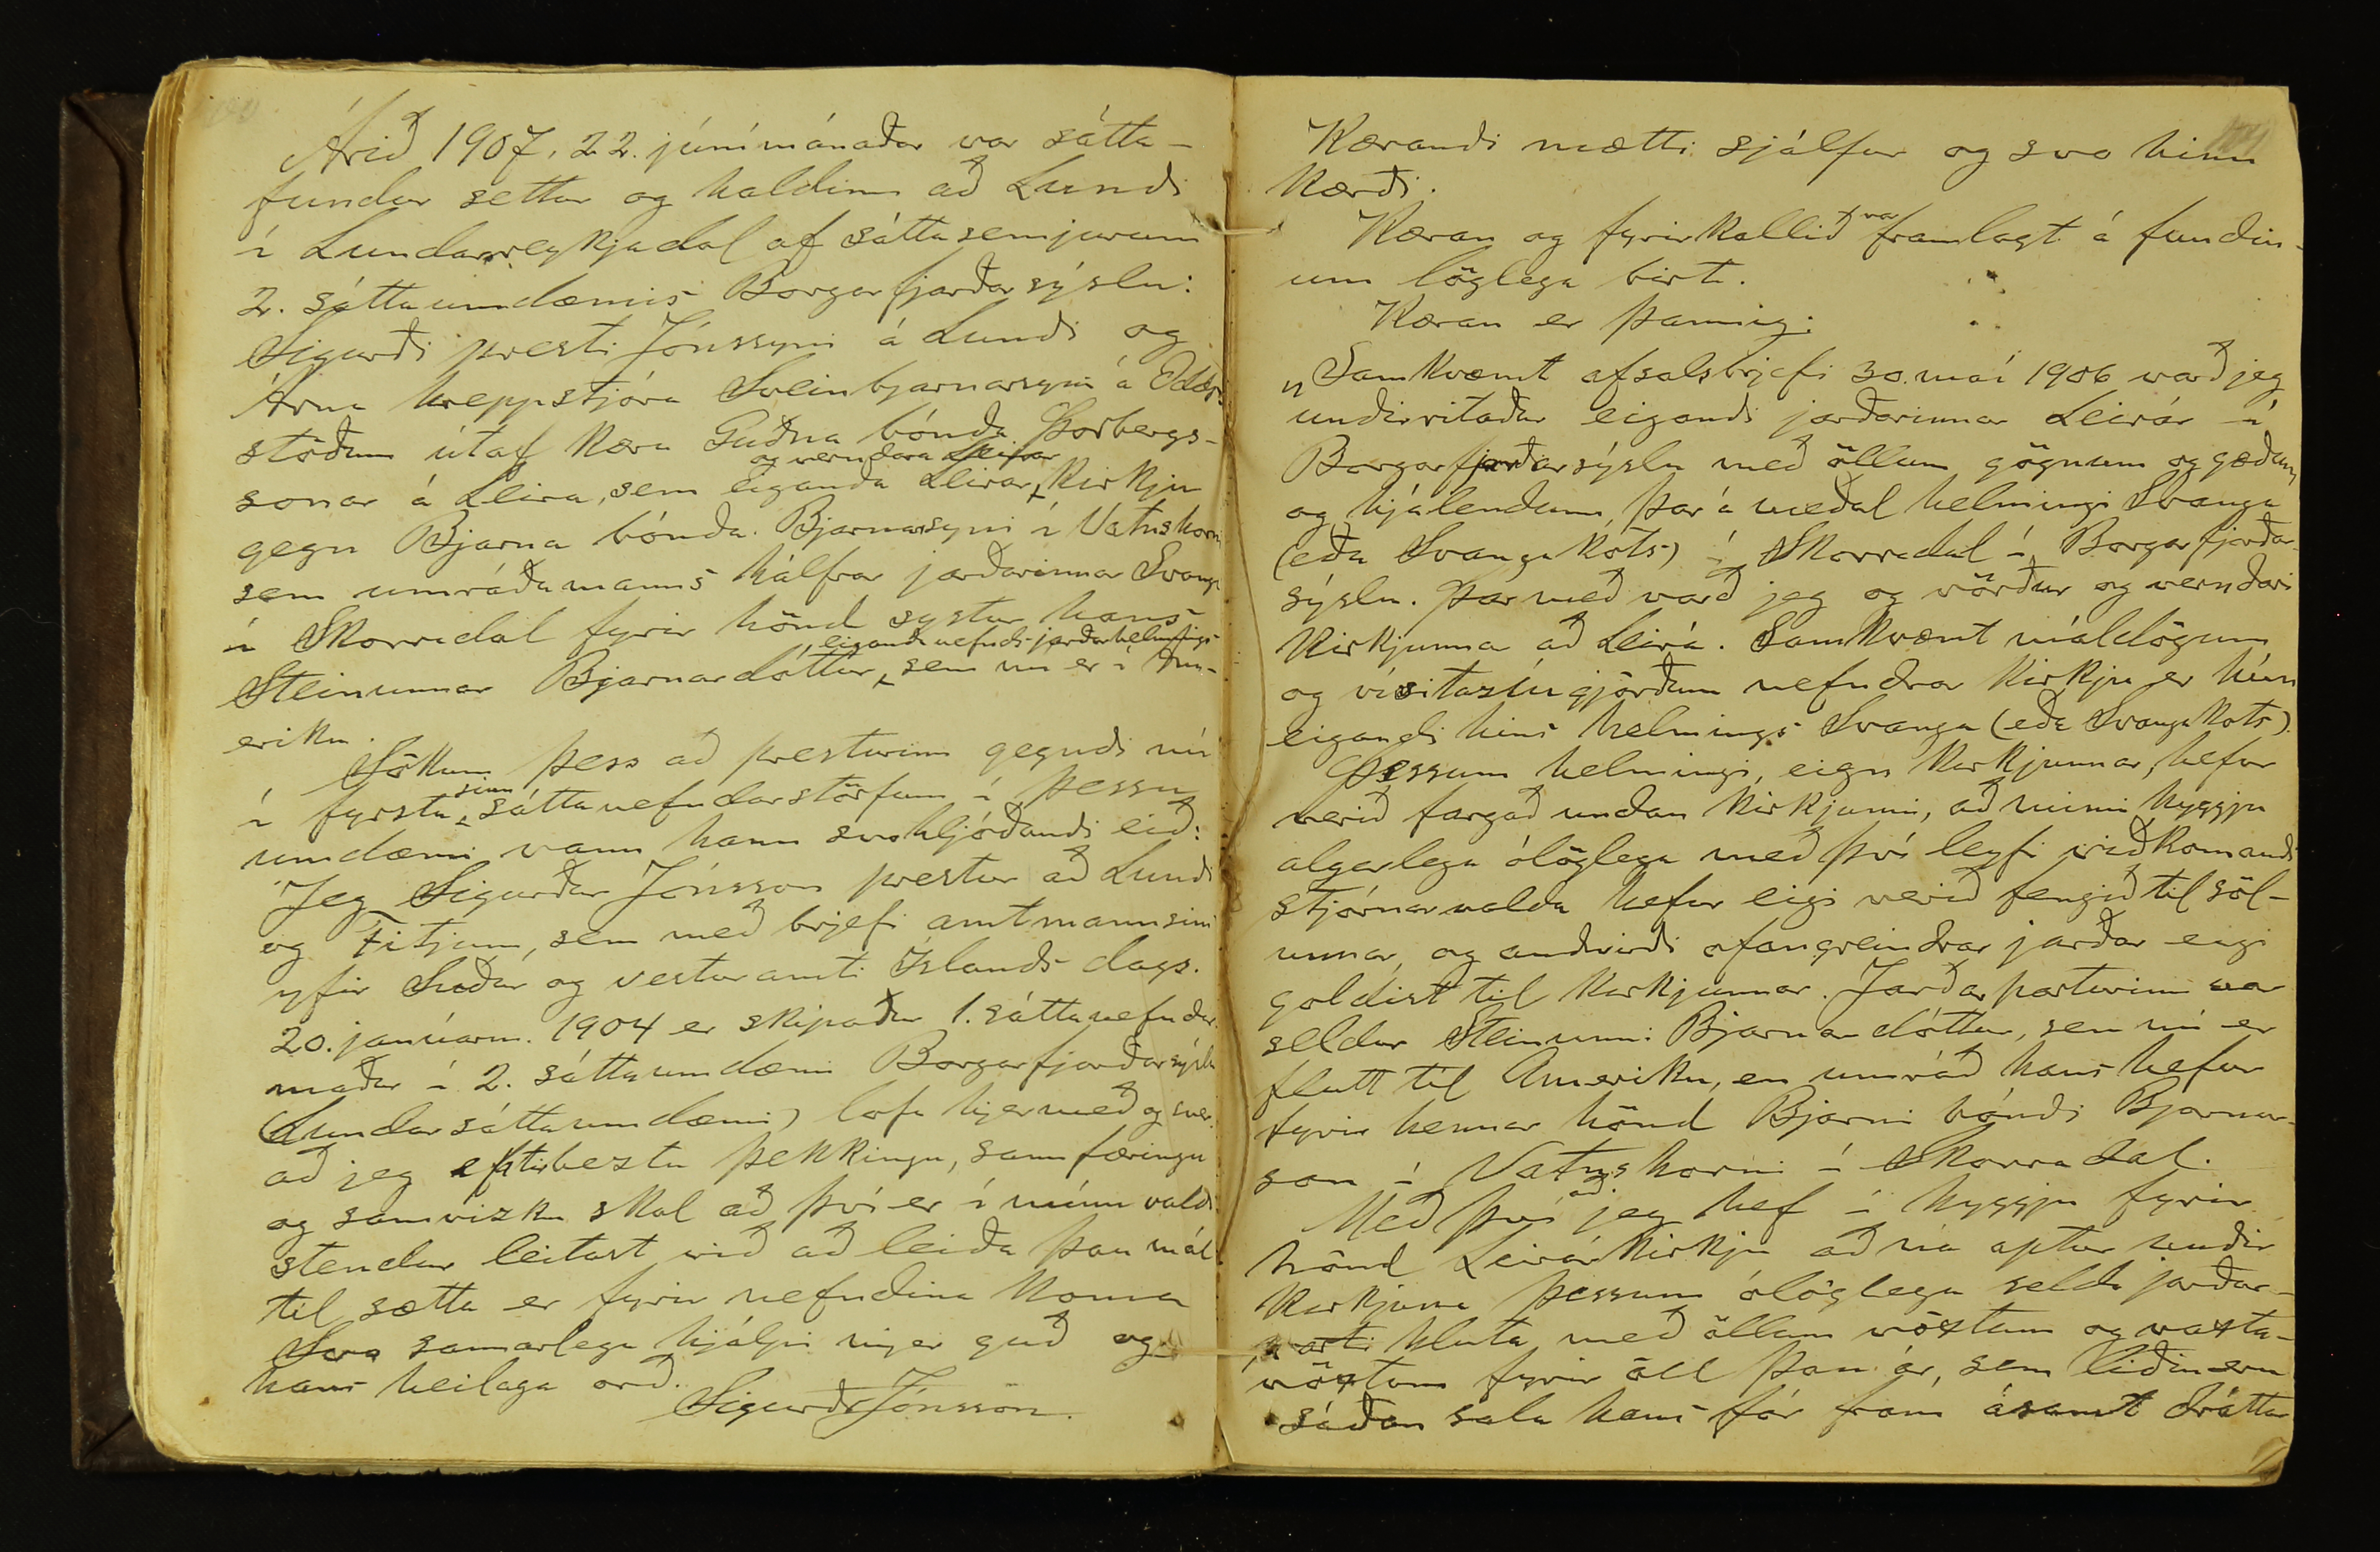 Árið 1907, 22. júnímánaðar var sátta-
fundur settur og haldinn að Lundi
í Lundarreykjadal af sáttasemjurum
2. sáttaumdæmis Borgarfjarðarsýslu:
Sigurði presti Jónssyni á Lundi og
Árna hreppstjóra Sveinbjarnarsyni á Odds-
stöðum útaf kæru Guðna bónda Þorbergs-
og verndara Leirár
sonar á Leirá, sem eiganda Leirár, kirkju
gegn Bjarna bónda Bjarnasyni í Vatnshorni
sem umráðamanns hálfrar jarðarinnar Svanga
í Skorradal fyrir hönd systur hans
eiganda nefnds jarðarhelmings
Steinunnar Bjarnardóttur, sem nú er í Am-
eriku.
Sökum þess að presturinn gegndi nú
sinn
í fyrsta sáttanefndarstörfum í þessu
umdæmi vann hann svohljóðandi eið:
Jeg Sigurður Jónsson prestur að Lundi
og Fitjum, sem með brjefi amtmannsins
yfir Suður og vesturamti Íslands dags.
20. janúarm. 1904 er skipaður 1. sáttanefndar
maður í 2. sáttaumdæmi Borgarfjarðarsýslu
(Lundarsáttaumdæmi) lofa hjermeð og sver
að jeg eptir beztu þekkingu, sannfæringu
og samvizku skal að því er í mínu valdi
stendur leitast við að leiða þau mál
til sætta er fyrir nefndina koma
Svo sannarlega hjálpi mjer guð og
hans heilaga orð.
Sigurðr Jónsson.
Kærandi mætti sjálfur og svo hinn
kærði.
var
Kæran og fyrirkallið framlagt á fundin-
um löglega birt.
Kæran er þannig:
„Samkvæmt afsalsbrjefi 30. maí 1906 varð jeg
undirritaður eigandi jarðarinnar Leirár í
Borgarfjarðarsýslu með öllum gögnum og gæðum
og hjálendum, þar á meðal helmingi Svanga
(eða Svangakots) í Skorradal í Borgarfjarðar-
sýslu. Þar með varð jeg og vörður og verndari
kirkjunnar að Leirá. Samkvæmt máldögum
og vísitazíugjörðum nefndrar kirkju er hún
eigandi hins helmings Svanga (eða Svangakots).
Þessum helmingi, eign kirkjunnar, hefur
verið fargað undan kirkjunni, að minni hyggju
algerlega ólöglega með því leyfi viðkomandi
stjórnarvalda hefur eigi verið fengið til söl-
unnar, og andvirði ofangreindrar jarðar eigi
goldist til kirkjunnar. Jarðarparturinn var
seldur Steinunni Bjarnardóttur, sem nú er
flutt til Ameriku, en umráð hans hefur
fyrir hennar hönd Bjarni bóndi Bjarnar-
son í Vatnshorni í Skorradal.
að
Með því jeg hef í hyggju fyrir
hönd Leirárkirkju að ná aptur undir
kirkjuna þessum ólöglega selda jarðar-
parti hluta með öllum vöxtum og vaxta-
vöxtum fyrir öll þau ár, sem liðin eru
síðan sala hans fór fram ásamt dráttar